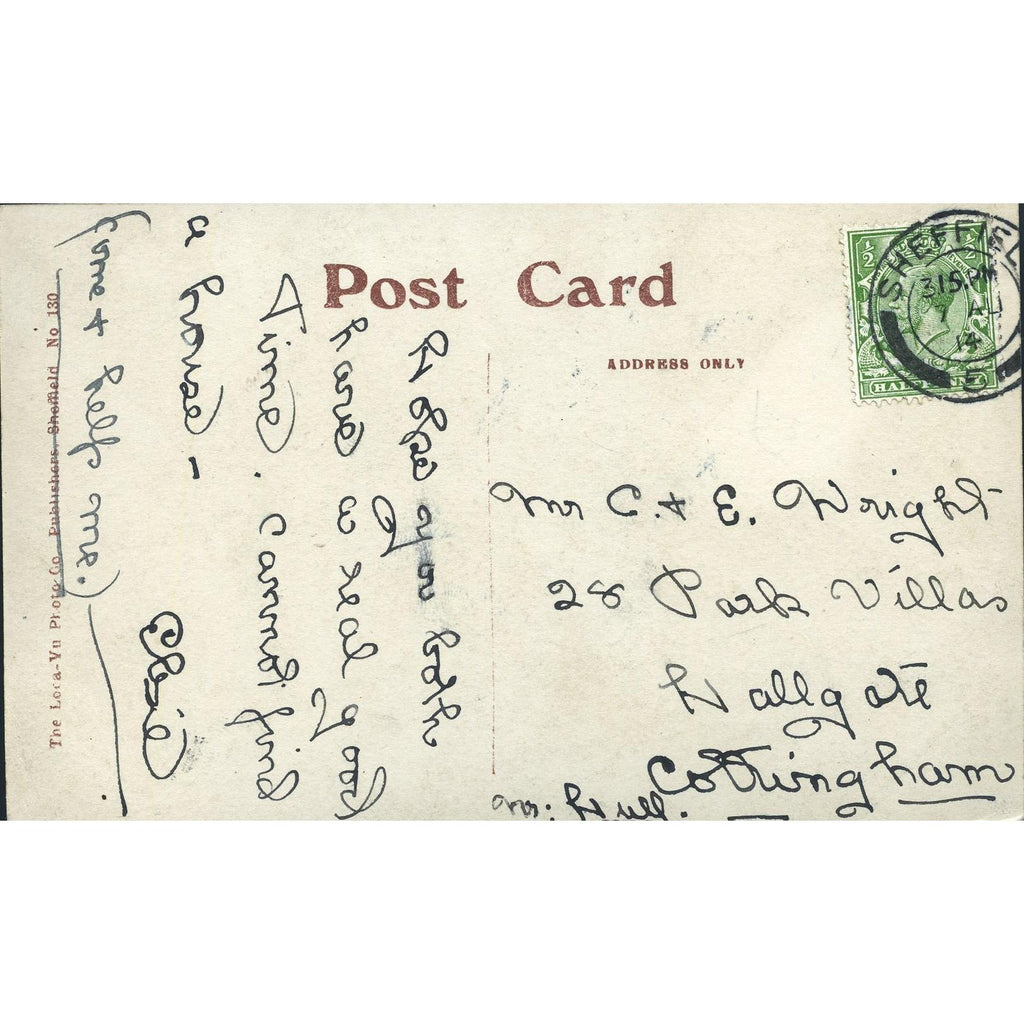 Post Card
ADDRESS ONLY
SHEFFIELD
3 15 PM
7 AU
14
E
½ ½
HALFPENNY
Mr C. & E. Wright
28 Park Villas
Hallgate
Cottingham
nr. Hull.
Hope you both
have a real good
Time. Cannot find
a house -
(come & help me.)
Elsie
The Loca-Vu Photo Co. Publishers, Sheffield No 130